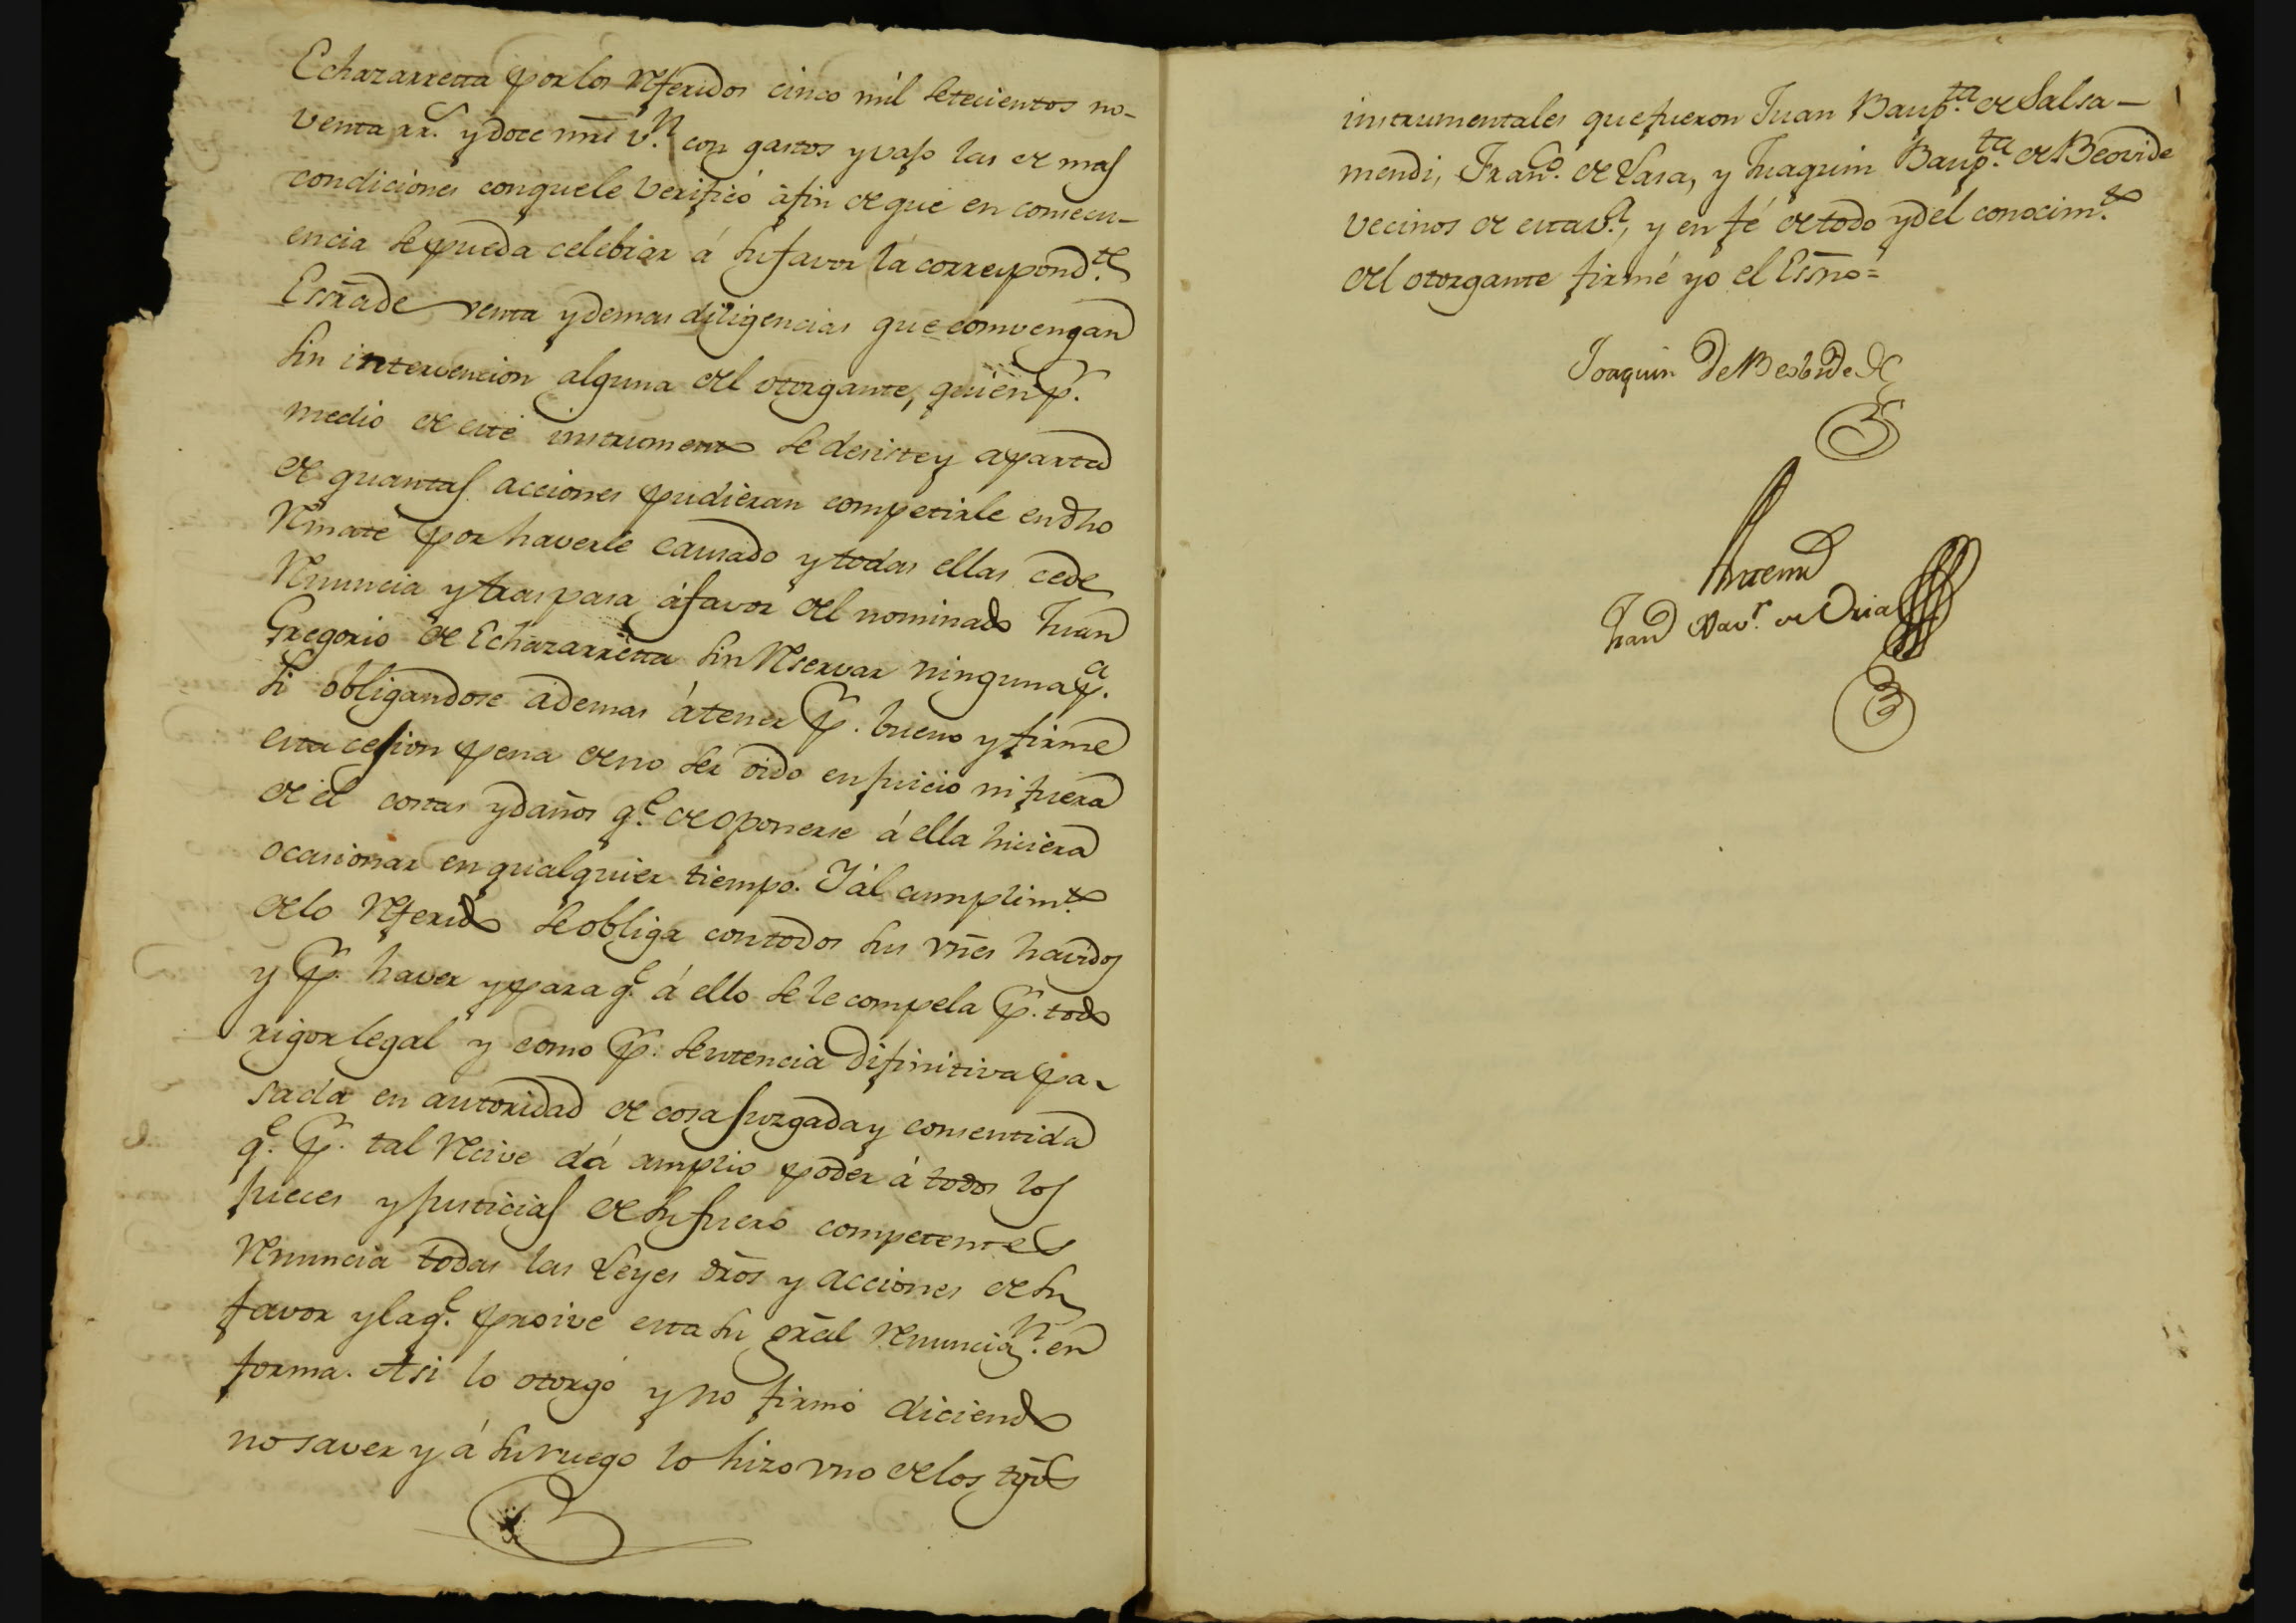 Echazarreta por los Referidos cinco mil setecientos no-
venta rr.s y doce mrs v.n con gastos y vajo las de mas
condiciones conque le Verificó á fin de que en consecu-
encia se pueda celebrar á su favor la correspond.te
Essrã de venta y demas diligencias que convengan
sin intervencion alguna del otorgante, quien p.r
medio de este instrumento se desiste y aparta
de quantas acciones pudieran competirle en dho
Remate por haverle causado y todas ellas cede
Renuncia y traspasa á favor del nominado Juan
Gregorio de Echazarreta sin Reservar ninguna p.a
si obligandose ademas á tener p.r bueno y firme
esta cesion pena de no ser oido en juicio ni fuera
de él costas y daños q.e de oponerse á ella hiciera
ocasionar en qualquier tiempo. Y al cumplim.to
de lo Referido se obliga con todos sus vñes havidos
y p.r haver y para q.e á ello se le compela p.r todo
rigor legal y como p.r sentencia difinitiva pa-
sada en autoridad de cosa juzgada y consentida
q.e p.r tal Recive dá amplio poder á todos los
jueces y justicias de su fuero competentes
Renuncia todas las Leyes drõs y acciones de su
favor y la q.e proive esta su grãl Renuncia.n en
forma. Asi lo otorgó y no firmó diciendo
no saver y á su ruego lo hizo vno de los tgõs
instrumentales que fueron Juan Baup.ta de Salsa-
mendi, Fran.co de Lasa, y Juaquin Baup.ta de Beovide
vecinos de esta v.a, y en fé de todo y del conocim.to
del otorgante firmé yo el Essño=
Joaquin de Beobide
Antemi
Juan Xav.r de Oria